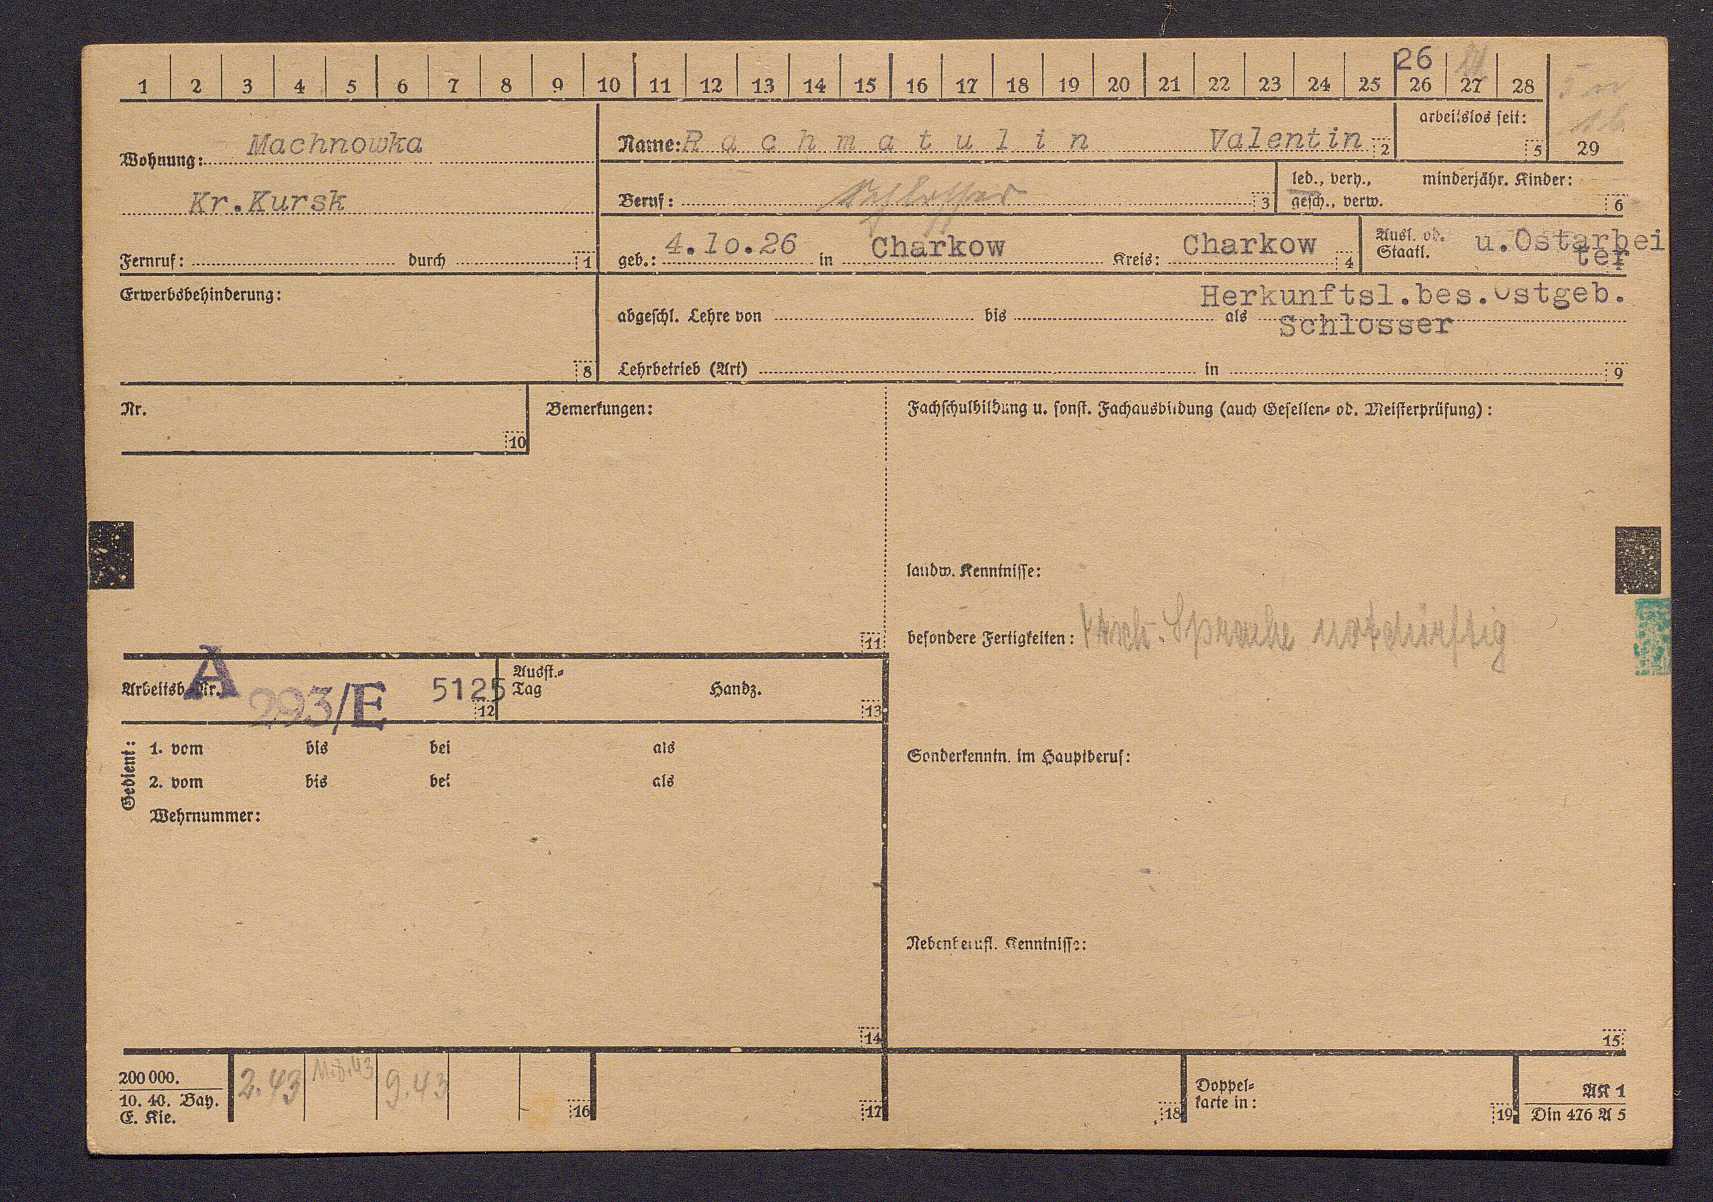 1 2 3 4 5 6 7 8 9 10 11 12 13 14 15 16 17 18 19 20 21 22 23 24 25 26 27 28
26
5
29
Wohnung: Machnowka
Kr.Kursk
Fernruf: durch 1
Name: Rachmatulin Valentin 2
arbeitslos seit: 5
Beruf: Schlosser 3
led., verh., gesch., verw.
minderjähr. Kinder: 6
geb.: 4.10.26 in Charkow Kreis: Charkow 4
Ausl. od. Staatl. u.Ostarbei
ter
Erwerbsbehinderung: 8
Herkunftsl.bes.Ostgeb.
abgeschl. Lehre von bis als
Schlosser
Lehrbetrieb (Art) in 9
Nr. 10
Bemerkungen: 11
Fachschulbildung u. sonst. Fachausbildung (auch Gesellen- od. Meisterprüfung):
landw. Kenntnisse:
besondere Fertigkeiten: Sprache notdürftig
Arbeitsb. Nr. A 293/E 5125 12
Ausst.-Tag Handz. 13
Gedient:
1. vom bis bei als
2. vom bis bei als
Wehrnummer:
Sonderkenntn. im Hauptberuf:
Nebenberufl. Kenntnisse:
14
15
200 000.
10. 40. Bay.
E. Kie.
2.43 9.43
16 17 18
Doppel-
karte in: 19
AK 1
Din 476 A 5